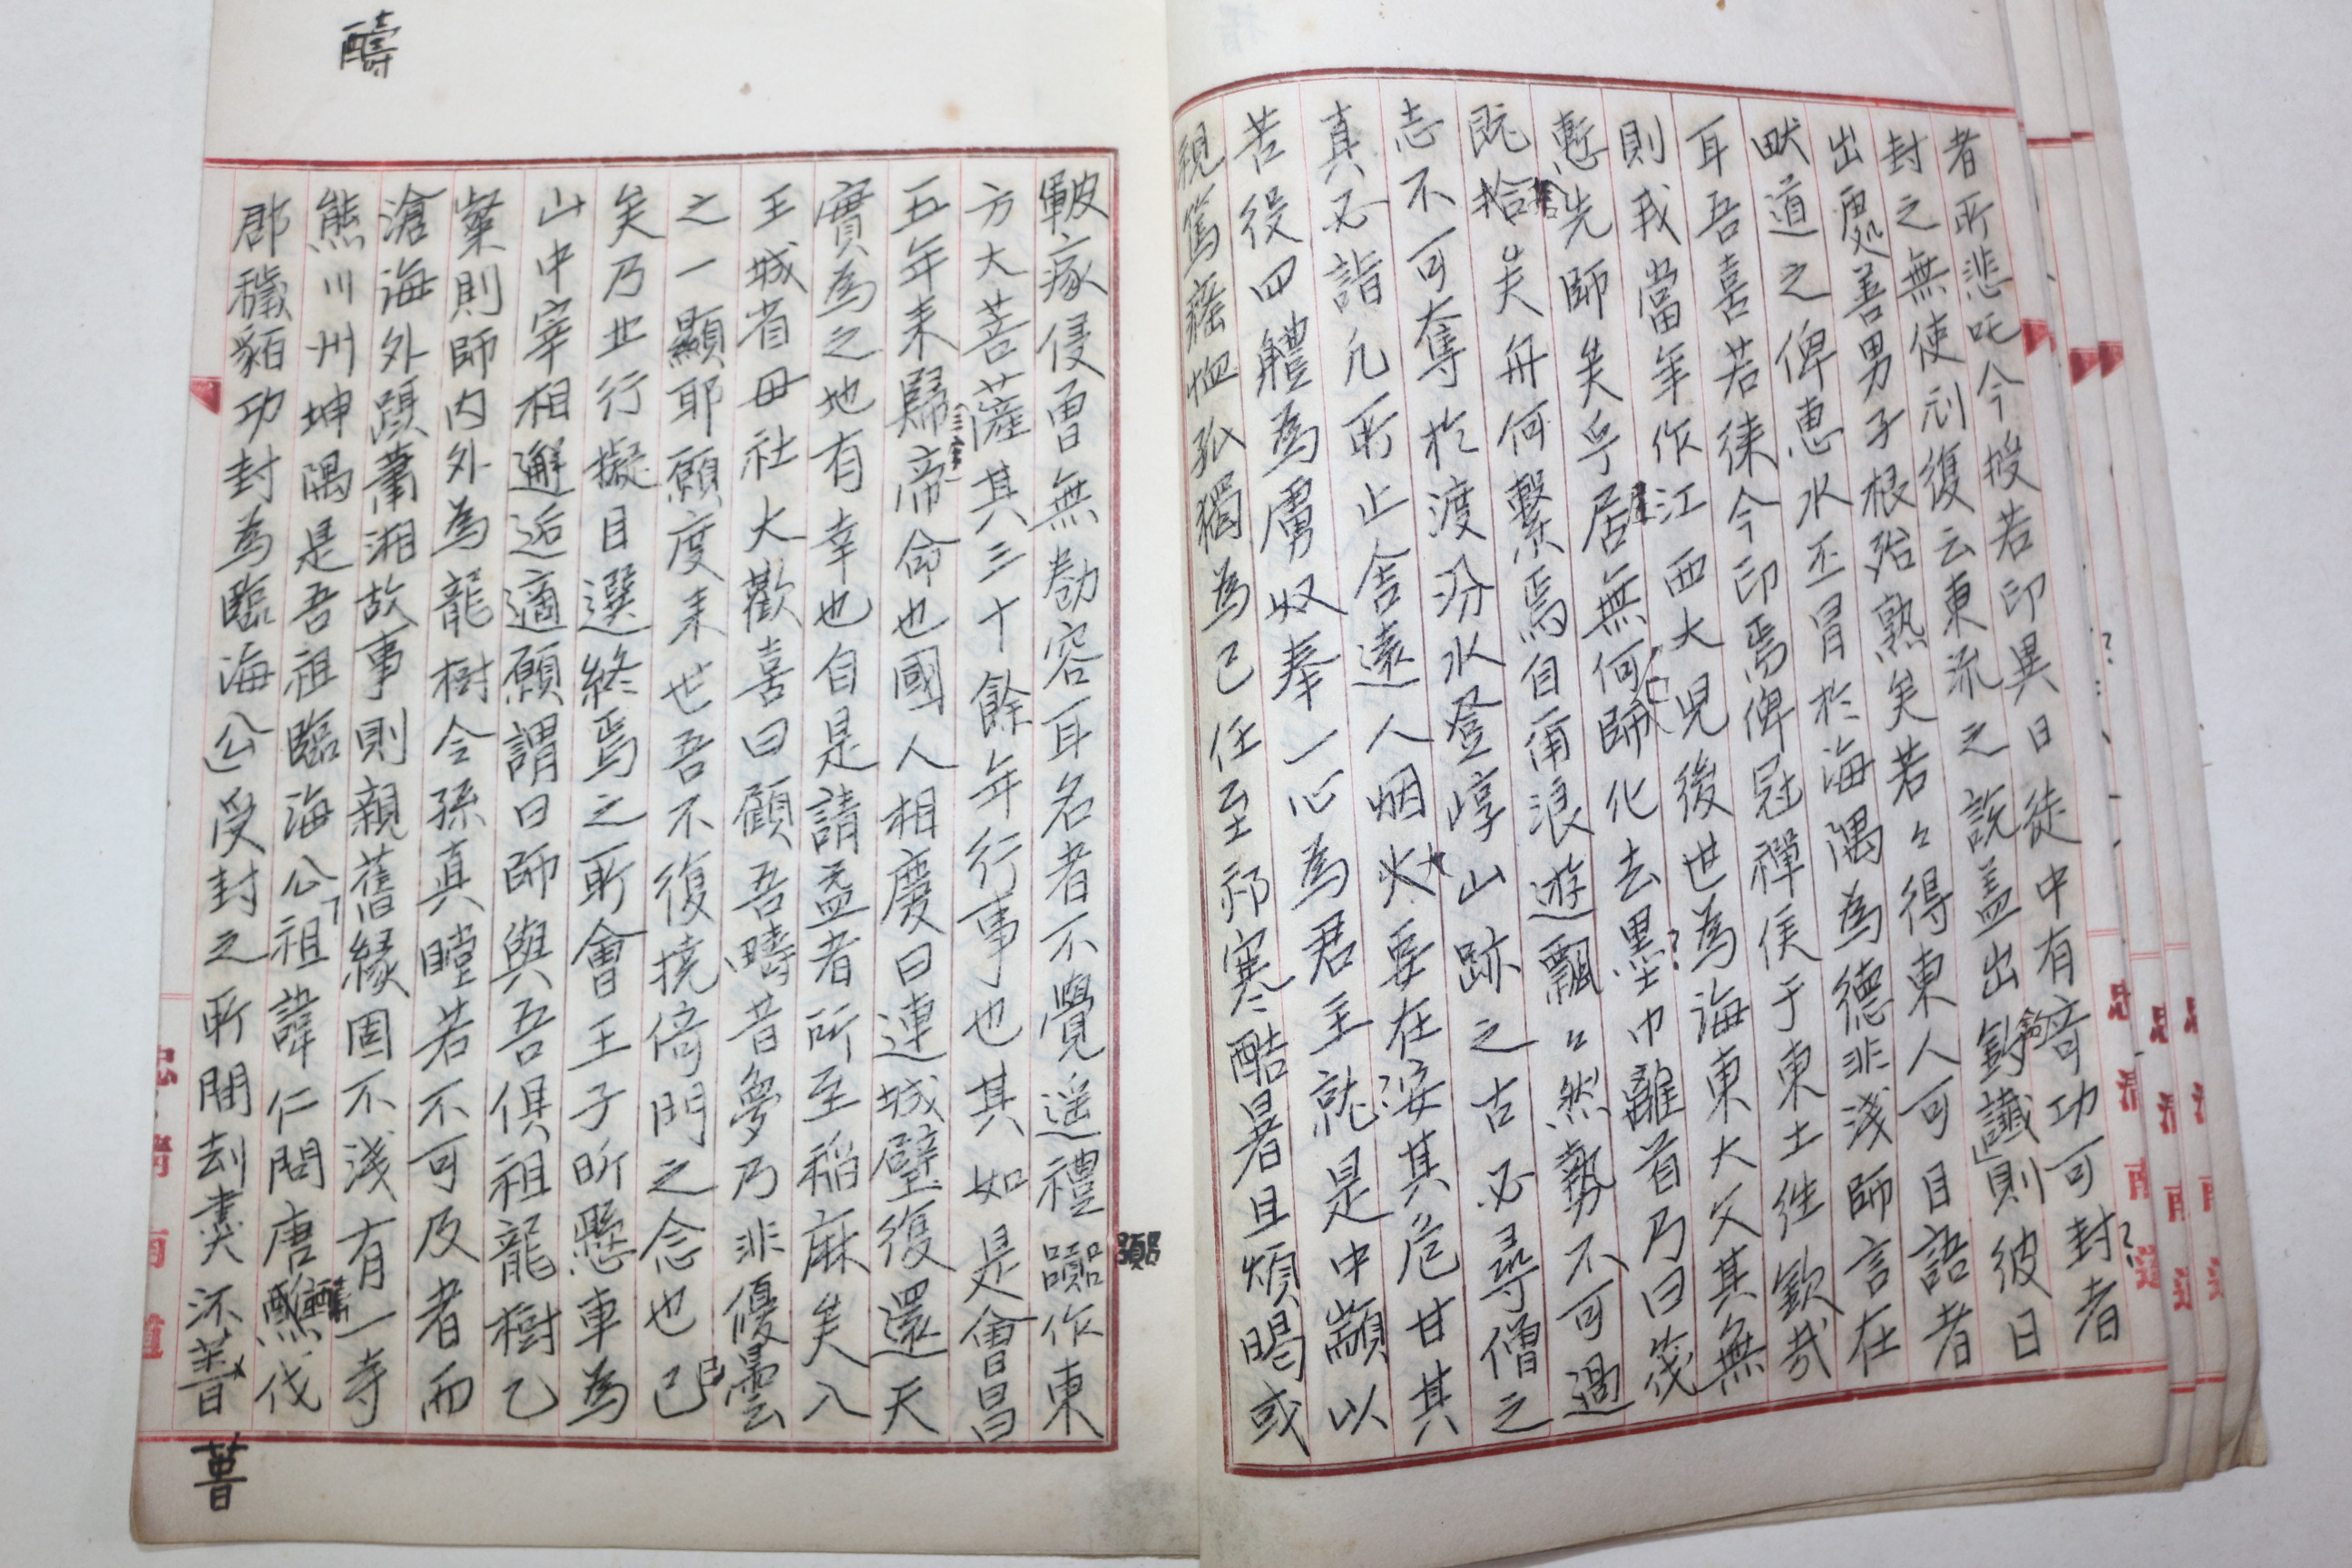 者所悲吒今授若印異日徒中有奇功可封者
封之無使刓復云東流之說盖出釣讖則彼日
出處善男子根殆熟矣若々得東人可目語者
畎道之俾惠水丕冒於海隅為德非淺師言在
耳吾喜若徠今印焉俾冠禪侯于東土往欽哉
則我當年作江西大児後世為海東大父其無
慙先師矣乎居無何師化去墨巾離首乃曰筏
既捨矣舟何繫焉自甭浪遊飄々然勢不可遏
志不可奪於渡汾水登崞山跡之古必尋僧之
真必詣凡所止舍遠人烟火要在安其危甘其
苦役四軆為虜奴奉一心為君主就是中顓以
視篤癃恤孤獨為已任至祁寒酷暑且煩暍或
皸瘃侵曺無勌容耳名者不覺遥禮囂作東
方大菩薩其三十餘年行事也其如是會昌
五年来歸帝命也國人相慶曰連城璧復還天
實為之地有幸也自是請益者所至稲麻矣入
王城省母社大歡喜曰顧吾疇昔夢乃非優曇
之一顯耶願度来世吾不復撓倚門之念也已
矣乃北行擬目選終焉之所會王子昕懸車為
山中宰相邂逅適願謂曰師與吾俱祖龍樹乙
粲則師內外為龍樹令孫真瞠若不可及者而
滄海外躡蕭湘故事則親舊緣固不淺有一寺
熊川州坤隅是吾祖臨海公祖諱仁問唐醻伐
郡獩貊功封為臨海公受封之所間刦㶳沴菑
疇
顓
菑